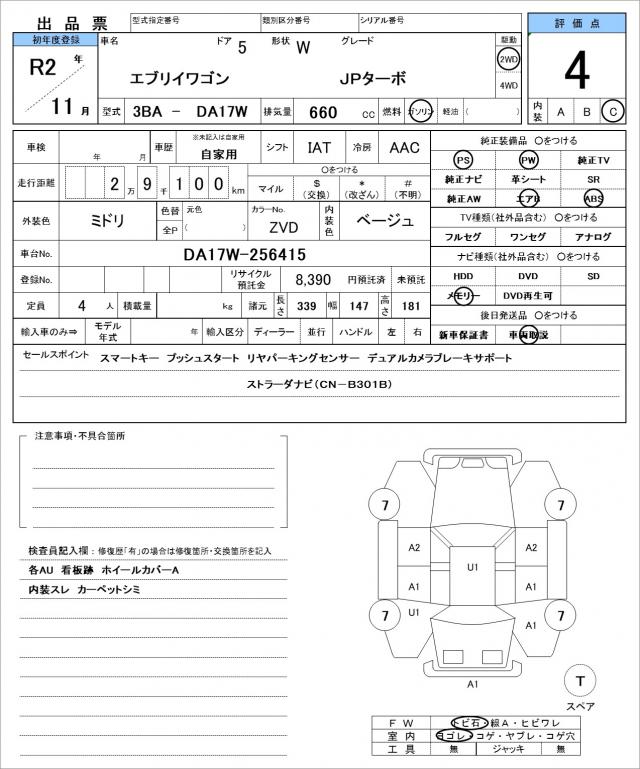 出品票
型式指定番号 類別区分番号 シリアル番号
評価点
初年度登録 車名 ドア 5 形状 W グレード 駆動
R2 年 エブリイワゴン JPターボ 2WD 4
4WD
11 月 型式 3BA － DA17W 排気量 660 cc 燃料 ガソリン 軽油 ( ) 内装 A B C
車検 年 月 車歴 ※未記入は自家用 自家用 シフト IAT 冷房 AAC
純正装備品 〇をつける
走行距離 2 万 9 千 1 0 0 km 〇をつける
マイル $ (交換) * (改ざん) # (不明)
PS PW 純正TV
純正ナビ 革シート SR
純正AW エアB ABS
外装色 ミドリ 色替 元色 全P ( ) カラーNo. ZVD 内装色 ベージュ
TV種類(社外品含む) 〇をつける
フルセグ ワンセグ アナログ
車台No. DA17W-256415
ナビ種類(社外品含む) 〇をつける
登録No. リサイクル預託金 8,390 円預託済 未預託
HDD DVD SD
メモリー DVD再生可
定員 4 人 積載量 kg 諸元 長さ 339 幅 147 高さ 181
後日発送品 〇をつける
輸入車のみ⇒ モデル年式 年 輸入区分 ディーラー 並行 ハンドル 左 右
新車保証書 車両取説
セールスポイント スマートキー プッシュスタート リヤパーキングセンサー デュアルカメラブレーキサポート
ストラーダナビ(CN－B301B)
注意事項・不具合箇所
検査員記入欄：修復歴「有」の場合は修復箇所・交換箇所を記入
各AU 看板跡 ホイールカバーA
内装スレ カーペットシミ
7 7
A2 A2
U1
A1 A1
7 U1 A1 7
A1
T
スペア
FW トビ石・線A・ヒビワレ
室内 ヨゴレ・コゲ・ヤブレ・コゲ穴
工具 無 ジャッキ 無